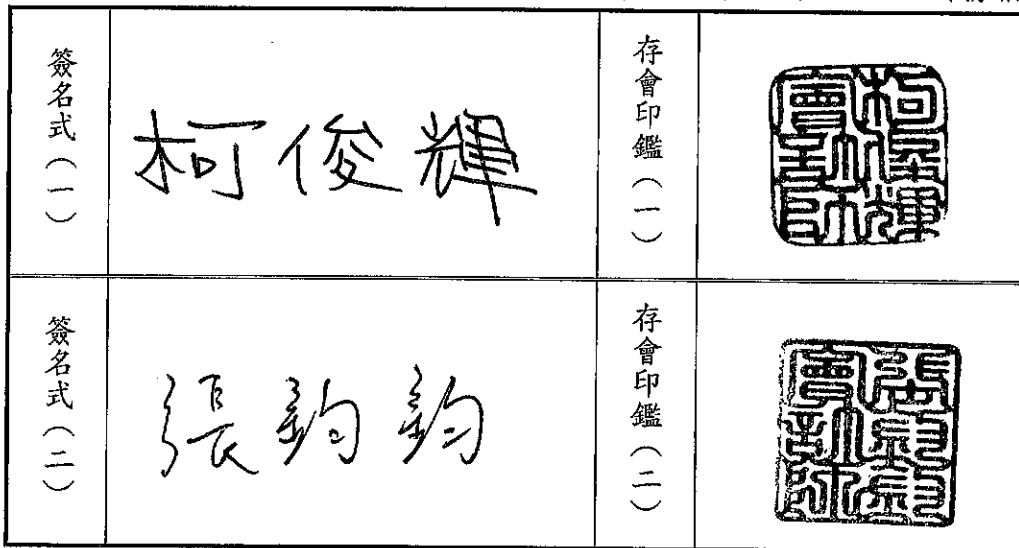 簽名式（一）
柯俊輝
存會印鑑（一）
柯俊輝會計師
簽名式（二）
張鈞鈞
存會印鑑（二）